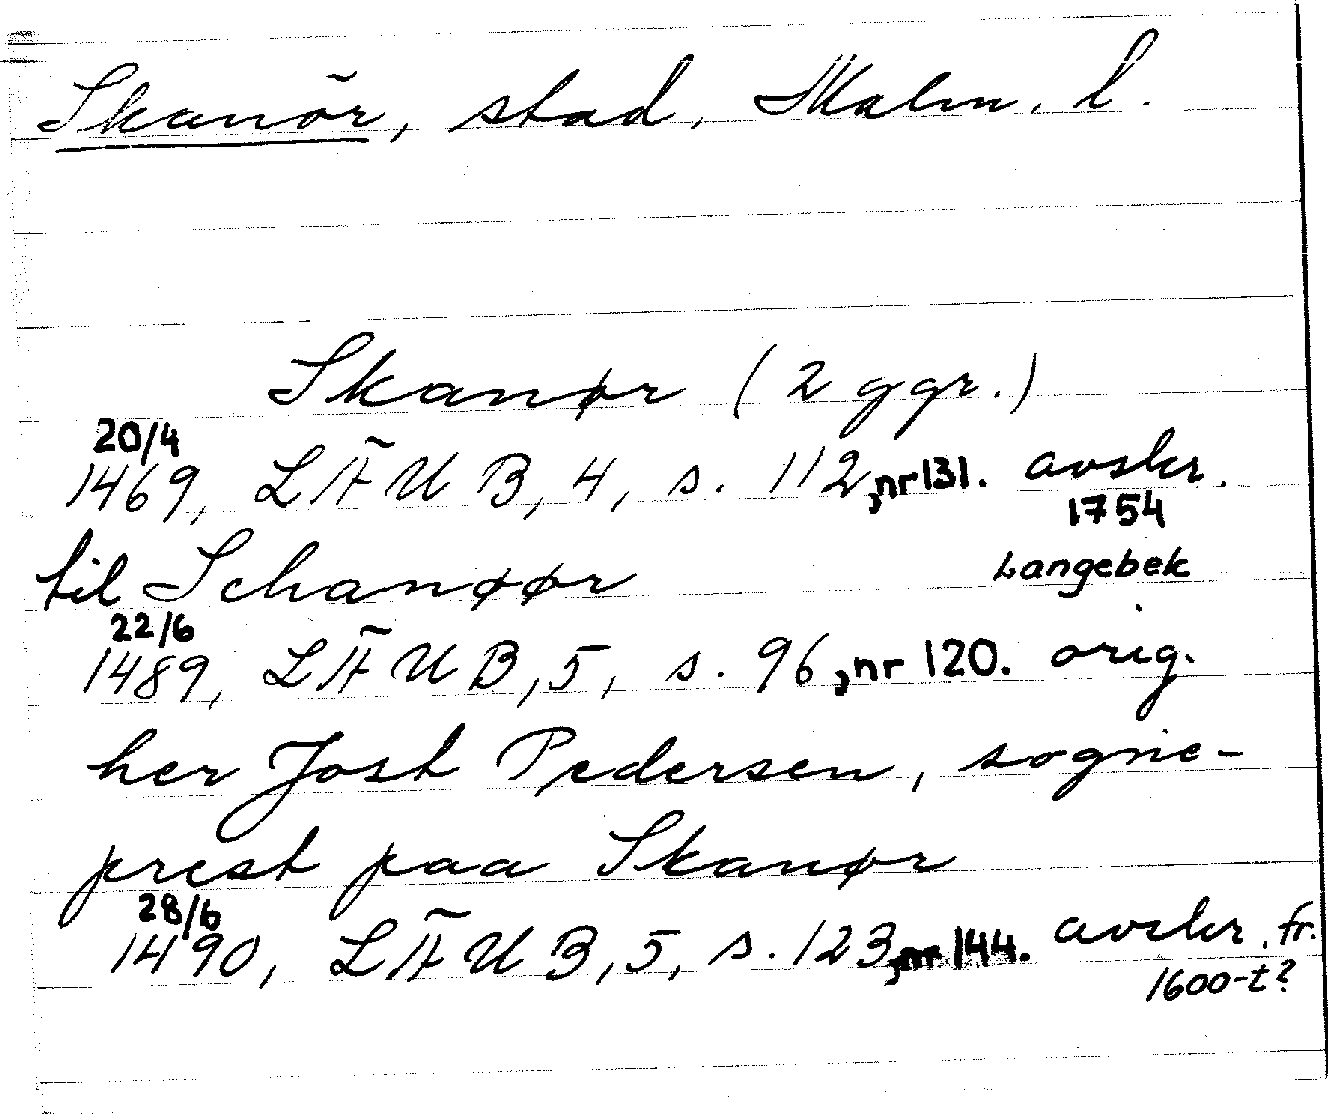 Skanör, stad, Malm. l.
Skanør (2 ggr.)
20/4
1469, LÄUB, 4, s. 112, nr 131. avskr.
1754
Langebek
til Schanøør
22/6
1489, LÄUB, 5, s. 96, nr 120. orig.
her Jost Pedersen, sogne-
prest paa Skanør
28/6
1490, LÄUB, 5, s. 123, nr 144. avskr. fr.
1600-t?